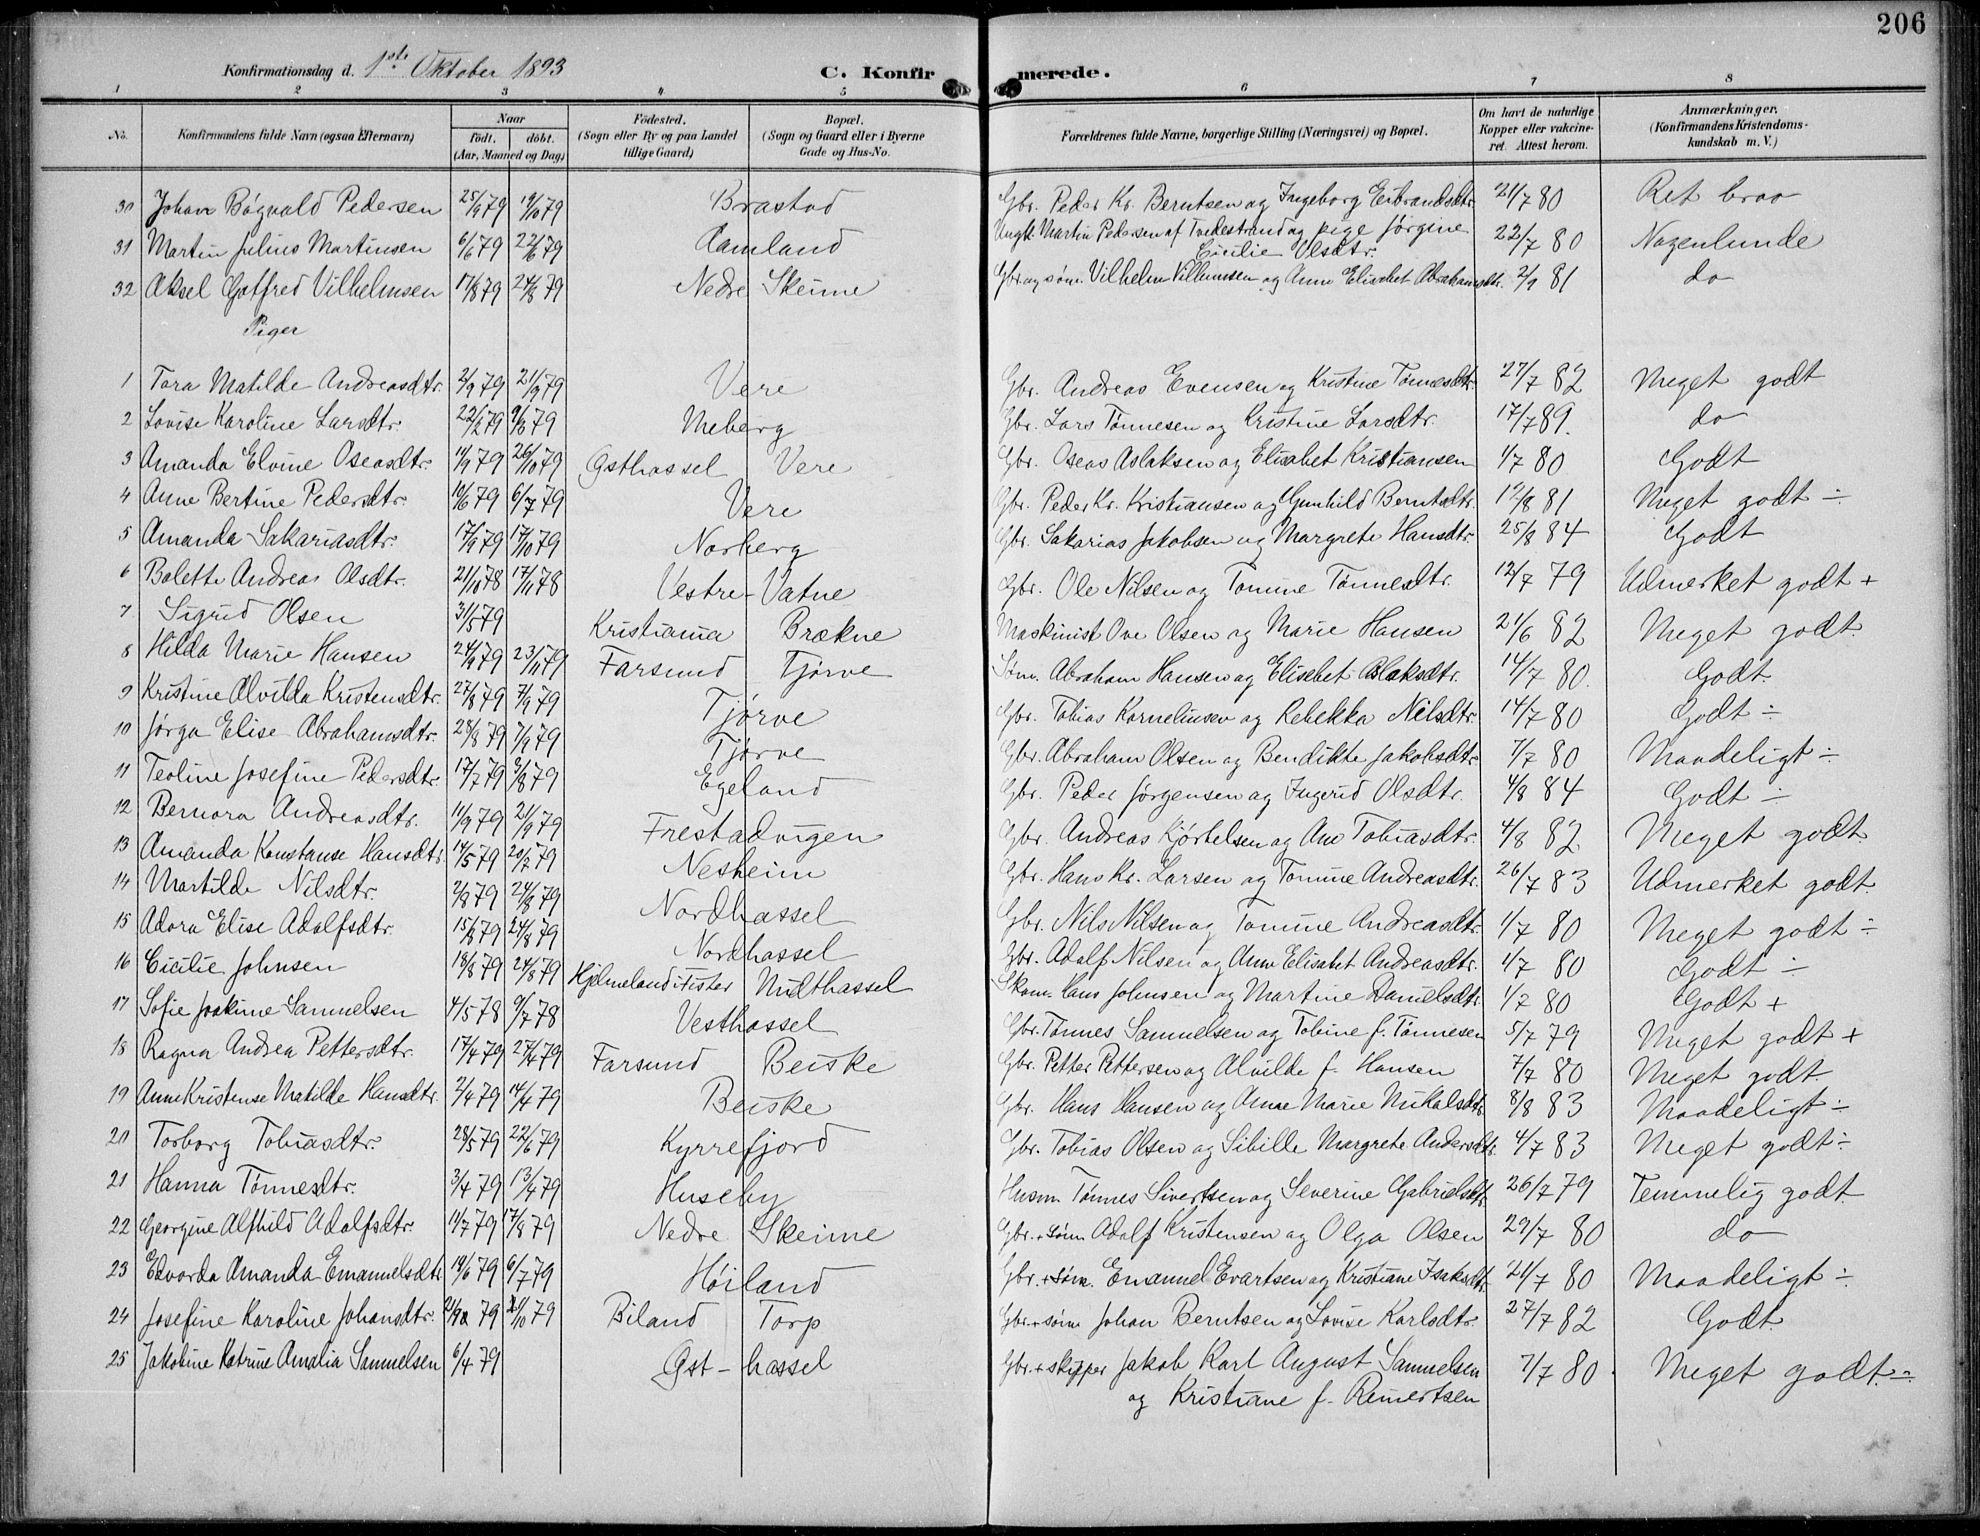 206
Konfirmationsdag d. 1ste Oktober 1893 C. Konfirmerede.
1 2 3 4 5 6 7 8
No. Konfirmandens fulde Navn (ogsaa Efternavn) Naar født. døbt. (Aar, Maaned og Dag) Fødested. (Sogn eller By og paa Landet tillige Gaard) Bopæl. (Sogn og Gaard eller i Byerne Gade og Hus-No. Forældrenes fulde Navne, borgerlige Stilling (Næringsvei) og Bopæl. Om havt de naturlige Kopper eller vakcineret. Attest herom. Anmærkninger. (Konfirmandens Kristendomskundskab m. V.)
30 Johan Bøgvald Pedersen 25/9 79 19/10 79 Brastad Gbr. Peder Kr. Berntsen og Ingeborg Erbrandsdtr. 21/7 80 Ret bra
31 Martin Julius Martinsen 6/6 79 22/6 79 Aamland Ungk. Martin Pedersen af Tvedestrand og pige Jørgine Cicilie Olsdtr. 22/7 80 Nogenlunde
32 Aksel Gotfred Vilhelmsen 17/8 79 24/8 79 Nedre Skeime Gbr. og søm. Vilhelm Villumsen og Anne Elisabet Abrahamsdtr. 2/9 81 do
Piger
1 Tora Matilde Andreasdtr. 2/9 79 21/9 79 Vere Gbr. Andreas Evensen og Kristine Tønnesdtr. 27/7 82 Meget godt
2 Lovise Karoline Larsdtr. 22/2 79 9/3 79 Meberg Gbr. Lars Tønnesen og Kristine Larsdtr. 17/7 89. do
3 Amanda Elvine Oseasdtr. 11/9 79 26/10 79 Østhassel Vere Gbr. Oseas Aslaksen og Elisabet Kristiansen 1/7 80 Godt
4 Anne Bertine Pedersdtr. 10/6 79 6/7 79 Vere Gbr. Peder Kr. Kristiansen og Gunhild Berntsdtr. 12/8 81 Meget godt ÷
5 Amanda Sakariasdtr. 17/9 79 17/10 79 Norberg Gbr. Sakarias Jakobsen og Margrete Hansdtr. 25/8 84 Godt
6 Bolette Andrea Olsdtr. 21/10 78 17/11 78 Vestre-Vatne Gbr. Ole Nilsen og Tomine Tønnesdtr. 12/7 79 Udmerket godt +
7 Sigrid Olsen 31/5 79 Kristiania Brækne Maskinist Ove Olsen og Marie Hansen 21/6 82 Meget godt.
8 Hilda Marie Hansen 24/9 79 23/11 79 Farsund Tjørve Søm. Abraham Hansen og Elisebet Aslaksdtr. 14/7 80. Godt.
9 Kristine Alvilda Kristensdtr. 27/8 79 7/9 79 Tjørve Gbr. Tobias Kornelinsen og Rebekka Nilsdtr. 14/7 80 Godt ÷
10 Jørga Elise Abrahamsdtr. 28/8 79 7/9 79 Tjørve Gbr. Abraham Olsen og Bendikte Jakobsdtr. 7/7 80 Maadeligt ÷
11 Teoline Josefine Pedersdtr. 17/7 79 3/8 79 Egeland Gbr. Peder Jørgensen og Ingerid Olsdtr. 4/8 84 Godt ÷
12 Bernora Andreasdtr. 11/9 79 21/9 79 Frestadvigen Gbr. Andreas Kjørkelsen og Ane Tobiasdtr. 4/8 82 Meget godt.
13 Amanda Konstanse Hansdtr. 14/5 79 20/7 79 Nesheim Gbr. Hans Kr. Larsen og Tomine Andreasdtr. 26/7 83 Udmerket godt.
14 Martilde Nilsdtr. 2/8 79 24/8 79 Nordhassel Gbr. Nils Nilsen og Tomine Andreasdtr. 1/7 80 Meget godt ÷
15 Adora Elise Adolfsdtr. 15/8 79 24/8 79 Nordhassel Gbr. Adolf Nilsen og Anne Elisabet Andreasdtr. 1/7 80 Godt ÷
16 Cicilie Johnsen 18/8 79 24/8 79 Hjelmeland i Fister Midthassel Skom. Hans Johnsen og Martine Danielsdtr. 1/7 80 Godt +
17 Sofie Joakime Samuelsen 4/5 78 9/7 78 Vesthassel Gbr. Tønnes Samuelsen og Tobine f. Tønnesen 5/7 79 Meget godt +
18 Ragna Andrea Pettersdtr. 17/4 79 27/4 79 Farsund Beiske Gbr. Petter Pettersen og Alvilde f. Hansen 7/7 80 Meget godt.
19 Anne Kristense Matilde Hansdtr. 2/4 79 14/4 79 Beiske Gbr. Hans Hansen og Anne Marie Nikolsdtr. 8/8 83 Maadeligt ÷
20 Torborg Tobiasdtr. 28/5 79 22/6 79 Kyrrefjord Gbr. Tobias Olsen og Sibille Margrete Andersdtr. 4/7 83 Meget godt ÷
21 Hanna Tønnesdtr. 3/4 79 13/4 79 Huseby Husm. Tønnes Sivertsen og Severine Gabrielsdtr. 26/7 79 Temmelig godt.
22 Georgine Alfhild Adolfsdtr. 11/7 79 17/8 79 Nedre Skeime Gbr. + søm. Adolf Kristensen og Olga Olsen 29/7 80 do
23 Edvarda Amanda Emanuelsdtr. 19/6 79 6/7 79 Høiland Gbr. + søm. Emanuel Evartsen og Kristiane Isaksdtr. 21/7 80 Maadeligt ÷
24 Josefine Karoline Johansdtr. 2/9 79 21/10 79 Biland Torp Gbr. + søm. Johan Berntsen og Lovise Karlsdtr. 27/7 82 Godt.
25 Jakobine Katrine Amalia Samuelsen 6/4 79 Øst-hassel Gbr. + skipper Jakob Karl August Samuelsen og Kristiane f. Reinertsen 7/7 80. Meget godt. ÷